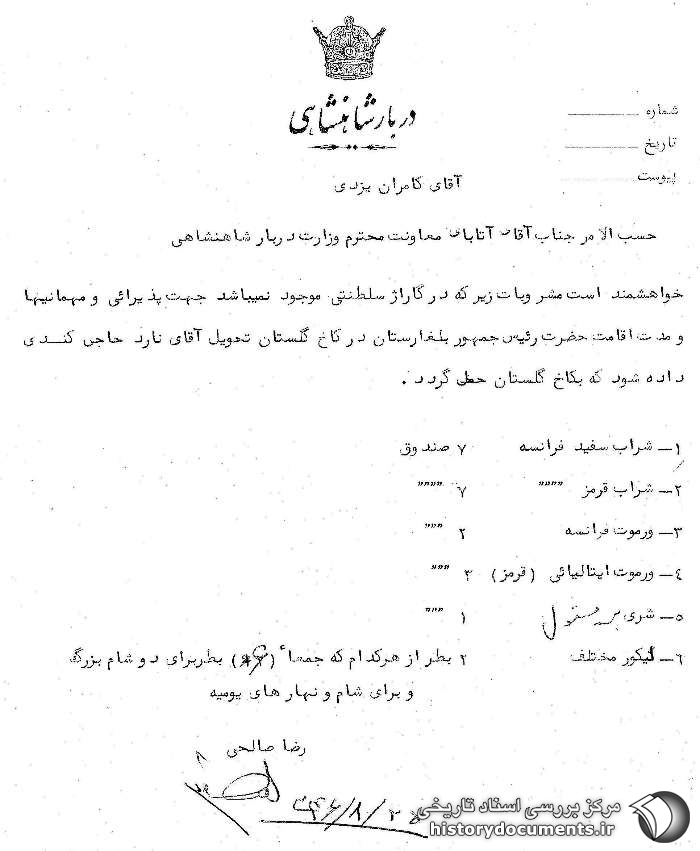 دربار شاهنشاهی
شماره
تاریخ
پیوست
آقای کامران یزدی
حسب الامر جناب آقای آتابای معاونت محترم وزارت دربار شاهنشاهی
خواهشمند است مشروبات زیر که در گاراژ سلطنتی موجود نمیباشد جهت پذیرائی و مهمانیها
و مدت اقامت حضرت رئیس جمهور بلغارستان در کاخ گلستان تحویل آقای نارد حاجی کندی
داده شود که بکاخ گلستان حمل گردد.
۱- شراب سفید فرانسه ۷ صندوق
۲- شراب قرمز """" ۷ """"
۳- ورموت فرانسه ۲ """
٤- ورموت ایتالیائی (قرمز) ۳ """
۵- شری ۱ """
٦- لیکور مختلف ۲ بطر از هرکدام که جمعاً بطر برای دو شام بزرگ
و برای شام و نهار های یومیه
رضا صالحی
مرکز بررسی اسناد تاریخی
historydocuments.ir